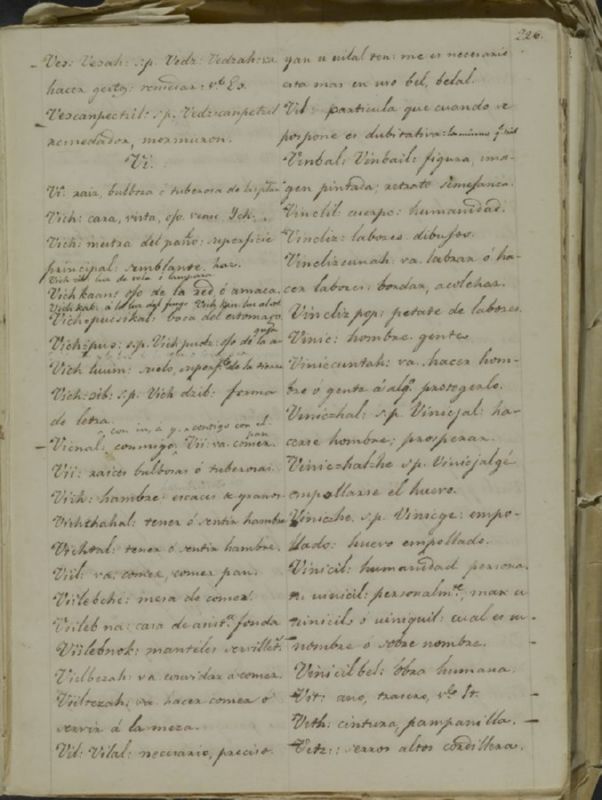 226.
Ves: Vesah: s.p. Vedz: Vedzah: va
hacer gestos: remedar: vº Es.
Vescanpectzil: s.p. Vedzcanpetzil
remedador, mormuron.
Vi.
Vi: raiz, bulbosa ó tuberosa de las
Vich: cara, vista, ojo, veáse Ych.
Vich: muestra del paño: superficie
principal: semblante. haz.
Vich cib: luz de vela ó lampara
Vich kaan: ojo de la red, ó amaca.
Vich kak: á la luz del fuego
Vich puczikal: boca del estomago
Vich puz: s.p. Vich pudz: ojo de la aguja
Vich luum: suelo, superfe de la tierra
Vich zib: s.p. Vich dzib: forma
de letra.
Vicnal: conmigo. Vii: va. comer. pan
Vii: raices bulbosas ó tuberosas.
Viih: hambre: escaces de granos
Viihthahal: tener ó sentir hambre
Viihtal: tener ó sentir hambre.
Viil: va. comer, comer pan.
Viilebche: mesa de comer.
Viileb na: casa de asista fonda
Viilebnok: manteles servillets
Viilbezah: va convidar á comer.
Viiltezah: va. hacer comer ó
servir á la mesa.
Vil: Vilal: necesario, preciso.
yan u vilal ten: me es necesario
esta mas en uso bel, belal.
Vil: particula que cuando se
pospone es dubitativa:
Vinbal: Vinbail: figura, ima-
gen pintada; retrato semejansa.
Vinclil: cuerpo: humanidad.
Vincliz: labores dibujos.
Vinclizcunah: va. labrar ó ha-
cer labores: bordar, acolchar.
Vincliz pop: petate de labores.
Vinic: hombre. gente
Viniccuntah: va. hacer hom-
bre ó gente á algo protegerlo.
Viniczhal: s.p. Vinicjal: ha-
cerse hombre; prosperar.
Viniczhalzhe s.p. Vinicjalgé
empollarse el huevo.
Viniczhe, s.p. Vinicge: empo-
llado: huevo empollado.
Vinicil: humanidad persona.
tu vinicil: personalmte, max u
vinicils ó viniquil: cual es su
nombre ó sobre nombre.
Vinicilbel: obra humana.
Vit: ano, trasero, vº It.
Vith: cintura, pampanilla.
Vitz: serros altos cordillera.